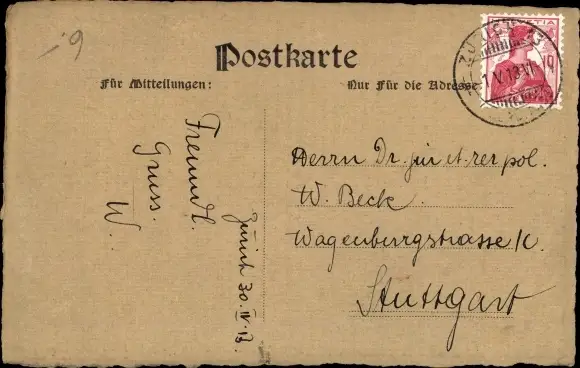 Postkarte
Für Mitteilungen:
Nur Für die Adresse
Freundl.
Gruss.
W.
Zürich 30.IV.13.
Herrn Dr. jur et. rer pol.
W. Beck.
Wagenburgstrasse
Stuttgart